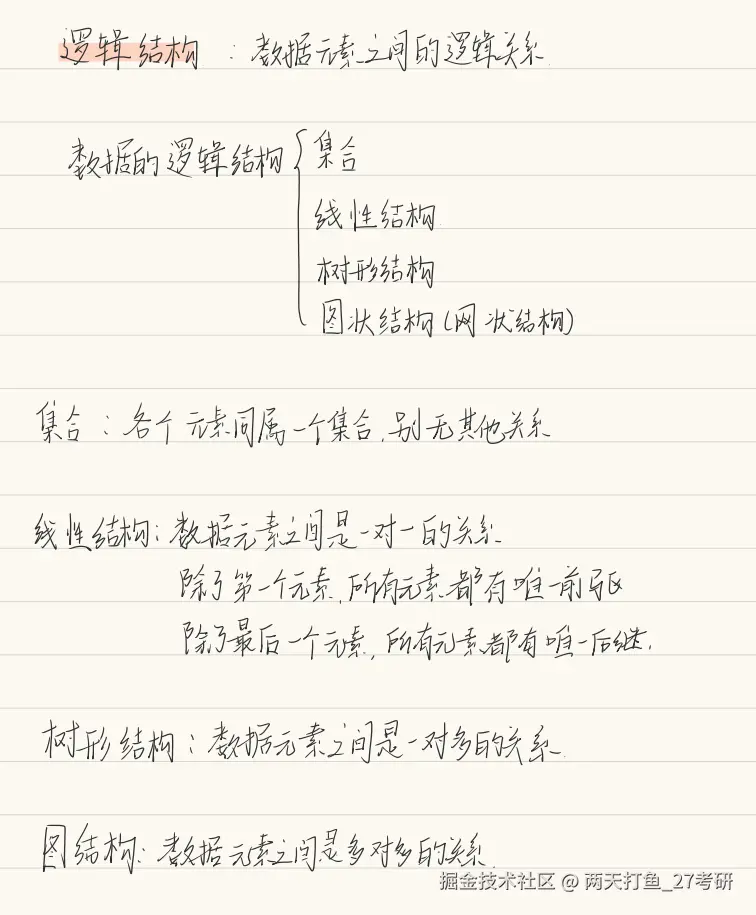 逻辑结构 : 数据元素之间的逻辑关系
数据的逻辑结构{集合
线性结构
树形结构
图状结构(网状结构)
集合 : 各个元素同属一个集合,别无其他关系
线性结构: 数据元素之间是一对一的关系
除了第一个元素,所有元素都有唯一前驱
除了最后一个元素,所有元素都有唯一后继.
树形结构 : 数据元素之间是一对多的关系
图结构: 数据元素之间是多对多的关系
掘金技术社区 @ 两天打鱼_27考研